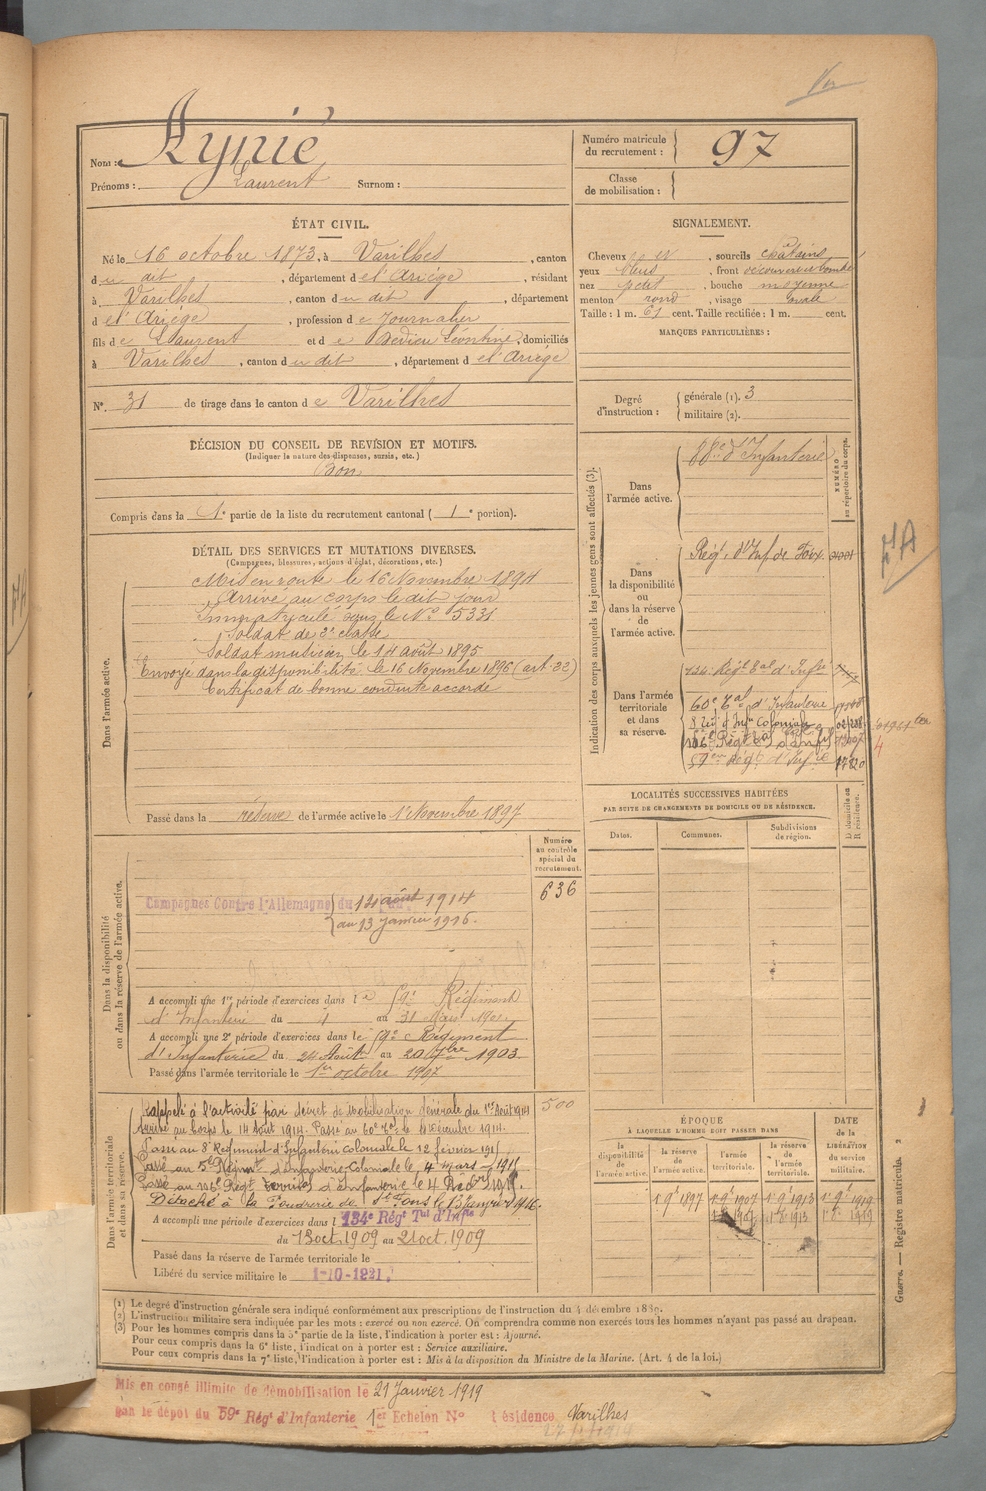 Nom : Aynié
Prénoms : Laurent Surnom :
Numéro matricule du recrutement : 97
Classe de mobilisation :
ÉTAT CIVIL.
Né le 16 octobre 1873, à Varilhes, canton
du dit, département de l'Ariège, résidant
à Varilhes, canton du dit, département
de l'Ariège, profession de Journalier
fils de Laurent et de Dedieu Léontine, domiciliés
à Varilhes, canton du dit, département de l'Ariège
N° 31 de tirage dans le canton de Varilhes
SIGNALEMENT.
Cheveux et, sourcils châtains
yeux bleus, front découvert et bombé
nez petit, bouche moyenne
menton rond, visage ovale
Taille : 1 m. 61 cent. Taille rectifiée : 1 m. cent.
MARQUES PARTICULIÈRES :
Degré d'instruction : générale (1). 3
militaire (2).
DÉCISION DU CONSEIL DE REVISION ET MOTIFS.
(Indiquer la nature des dispenses, sursis, etc.)
Bon
Compris dans la 1e partie de la liste du recrutement cantonal ( 1 e portion).
DÉTAIL DES SERVICES ET MUTATIONS DIVERSES.
(Campagnes, blessures, actions d'éclat, décorations, etc.)
Dans l'armée active.
Mis en route le 16 Novembre 1894
Arrivé au corps le dit jour
Immatriculé sous le N° 5331
Soldat de 2e classe
Soldat musicien le 14 août 1895
Envoyé dans la disponibilité le 16 Novembre 1896 (art. 22)
Certificat de bonne conduite accordé
Passé dans la réserve de l'armée active le 1er Novembre 1897
Indication des corps auxquels les jeunes gens sont affectés (3).
NUMÉRO au répertoire du corps.
Dans l'armée active.
88e d'Infanterie
Dans la disponibilité ou dans la réserve de l'armée active.
Régt d'Inf. de Foix
Dans l'armée territoriale et dans sa réserve.
134e Régt Tal d'Infie
60e Tal d'Infanterie
8 Régt d'Infie Coloniale
59e Régt d'Infie 17820
4
LOCALITÉS SUCCESSIVES HABITÉES
PAR SUITE DE CHANGEMENTS DE DOMICILE OU DE RÉSIDENCE.
Dates. Communes. Subdivisions de région. D domicile ou R résidence.
Dans la disponibilité ou dans la réserve de l'armée active.
Numéro au contrôle spécial du recrutement.
636
Campagnes Contre l'Allemagne du 14 août 1914
au 13 janvier 1916.
A accompli une 1re période d'exercices dans le 59e Régiment
d'Infanterie du 4 au 31 Mars
A accompli une 2e période d'exercices dans le 59e Régiment
d'Infanterie du 24 Août au 20 7bre 1903.
Passé dans l'armée territoriale le 1er octobre 1907
Dans l'armée territoriale et dans sa réserve.
500
Rappelé à l'activité par décret de Mobilisation Générale du 1er Août 1914
Arrivé au corps le 14 Août 1914. Passé au 60e Tal le 4 Décembre 1914.
Passé au 8e Régiment d'Infanterie coloniale le 12 février 1915
Passé au 5e Régiment d'Infanterie Coloniale le 4 mars 1915
Passé au Régt d'Infanterie le 4
Détaché à la Poudrerie de St Fons le 13 Janvier 1916.
A accompli une période d'exercices dans l 134e Régt Tal d'Infie
du 13 oct. 1909 au 21 oct. 1909
Passé dans la réserve de l'armée territoriale le
Libéré du service militaire le 1-10-1921.
ÉPOQUE
À LAQUELLE L'HOMME DOIT PASSER DANS
DATE de la LIBÉRATION du service militaire.
la disponibilité de l'armée active. la réserve de l'armée active. l'armée territoriale. la réserve de l'armée territoriale.
1 9e 1897 1 9e 1907 1 9e 1913 1 9e 1919
1907 1913 1919
Guerre. — Registre matricule. 2
(1) Le degré d'instruction générale sera indiqué conformément aux prescriptions de l'instruction du 4 décembre 1889.
(2) L'instruction militaire sera indiquée par les mots : exercé ou non exercé. On comprendra comme non exercés tous les hommes n'ayant pas passé au drapeau.
(3) Pour les hommes compris dans la 5e partie de la liste, l'indication à porter est : Ajourné.
Pour ceux compris dans la 6e liste, l'indication à porter est : Service auxiliaire.
Pour ceux compris dans la 7e liste, l'indication à porter est : Mis à la disposition du Ministre de la Marine. (Art. 4 de la loi.)
Mis en congé illimité de démobilisation le 21 Janvier 1919
par le dépôt du 59e Régt d'Infanterie 1er Echelon N° Résidence Varilhes